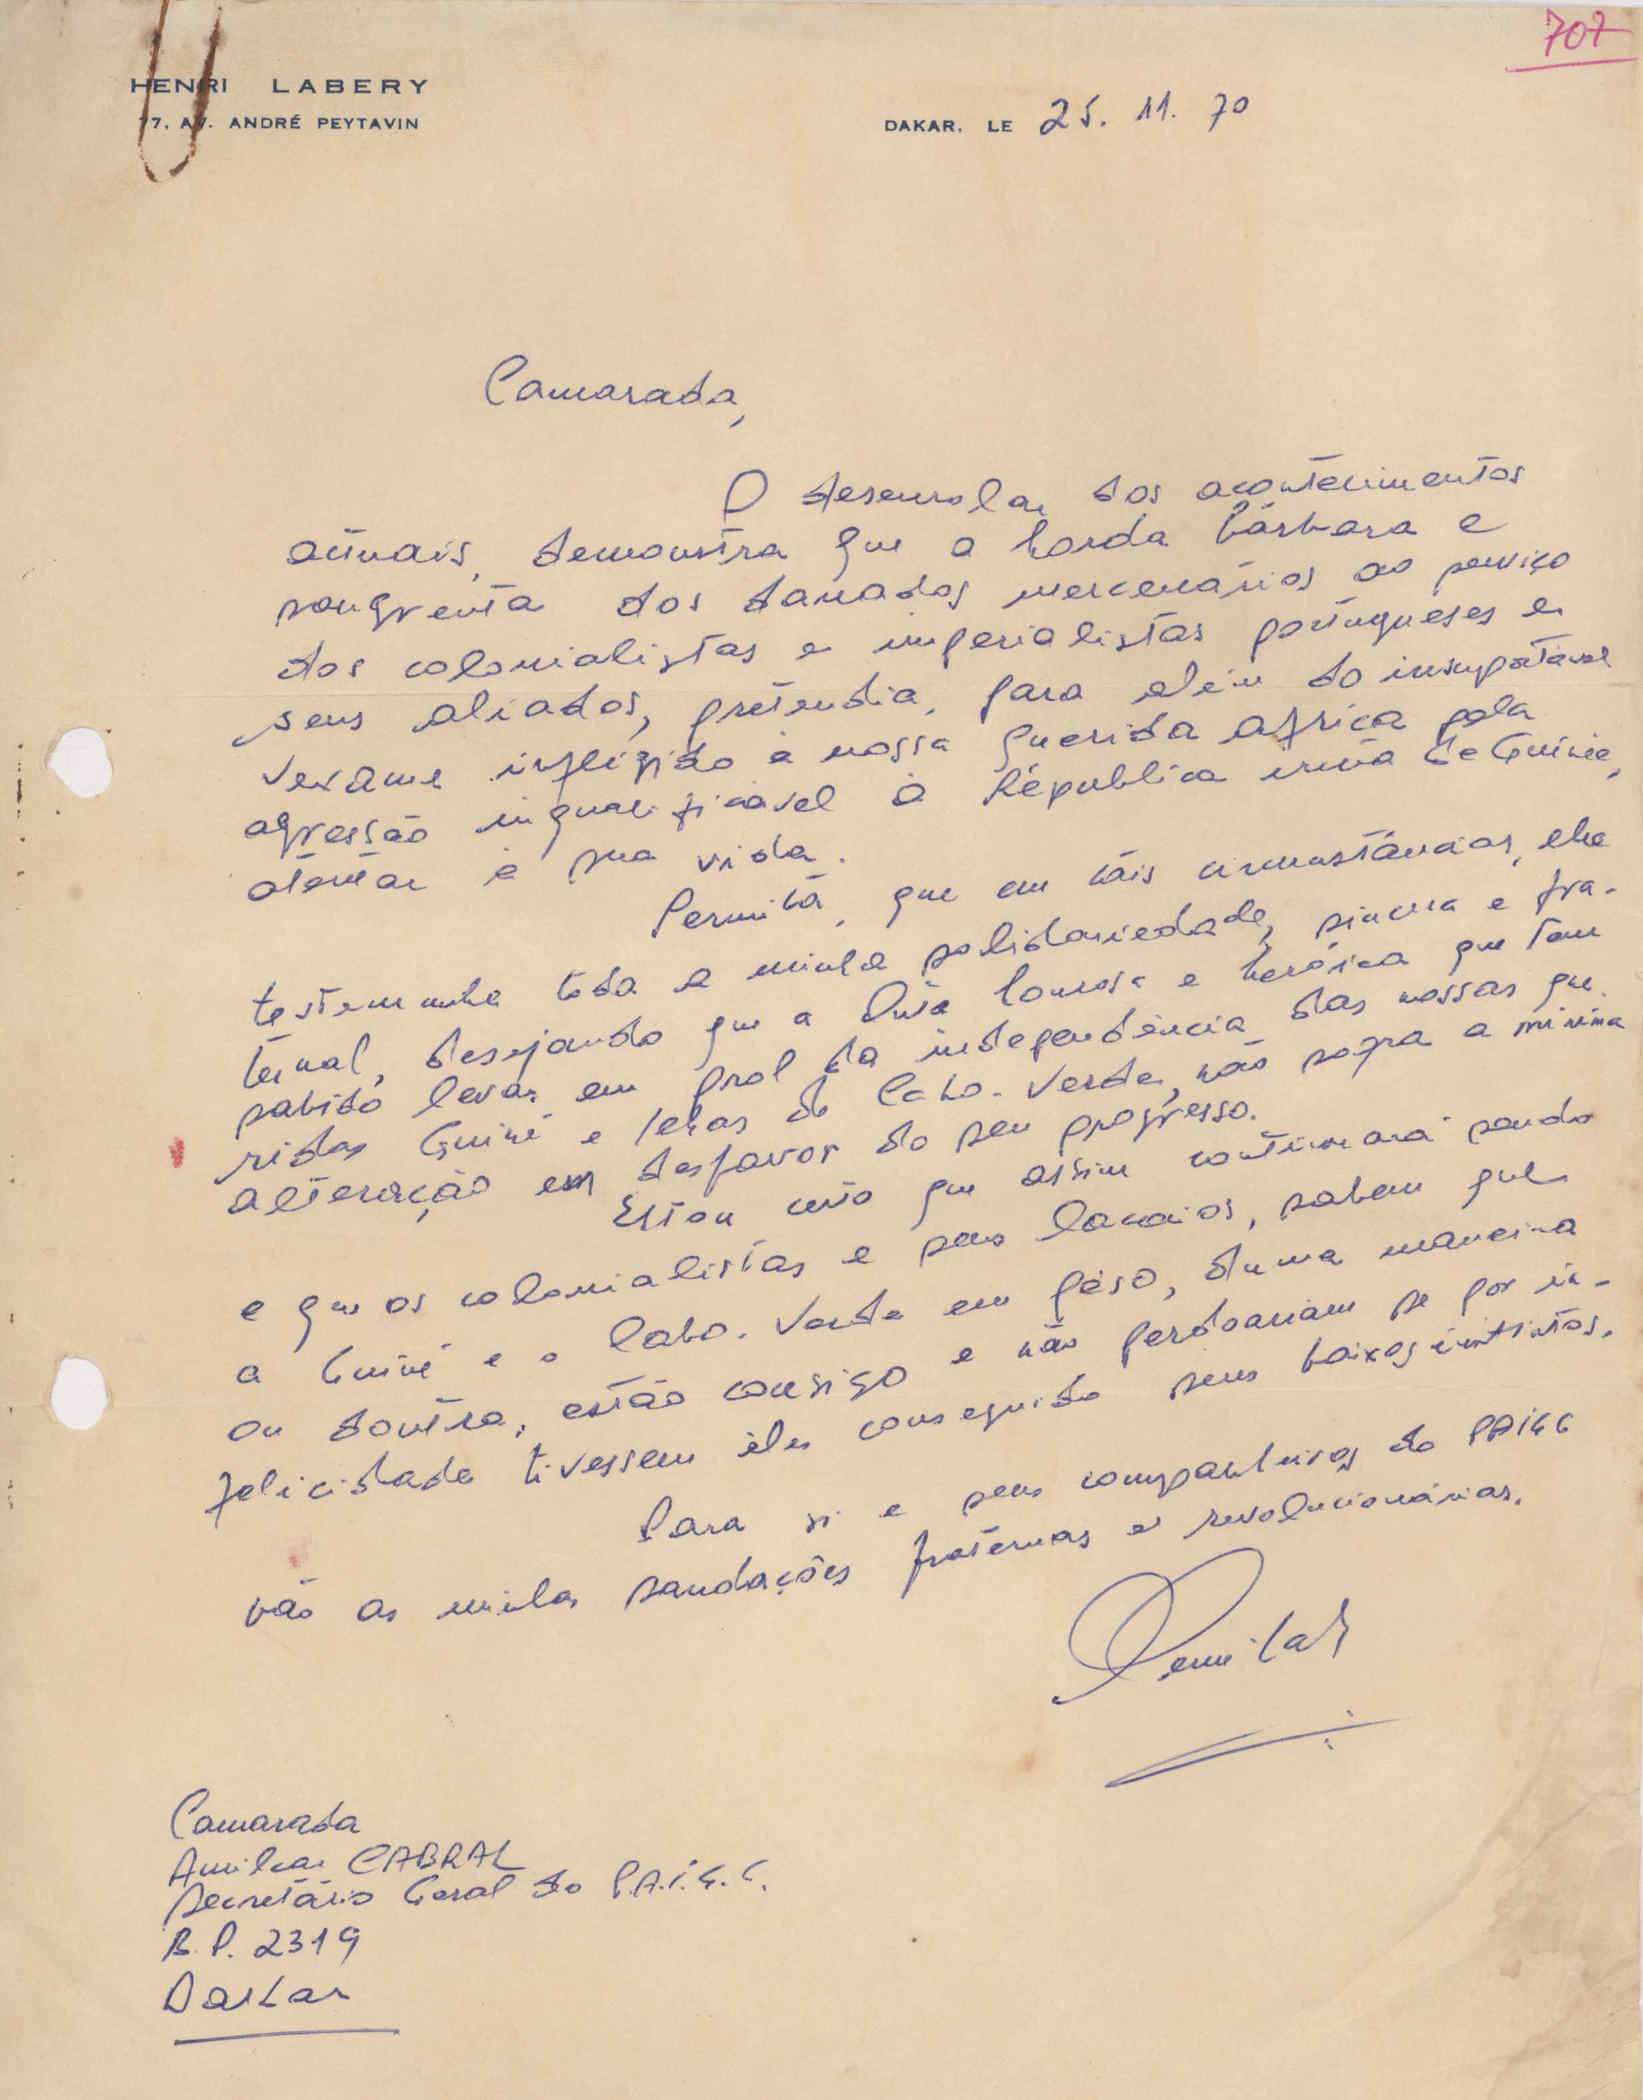 707
HENRI LABERY
77, AV. ANDRÉ PEYTAVIN
DAKAR, LE 25. 11. 70
Camarada,
O desenrolar dos acontecimentos
actuais, demonstra que a horda bárbara e
sangrenta dos danados mercenários ao serviço
dos colonialistas e imperialistas portugueses e
seus aliados, pretendia, para além do insuportável
vexame infligido à nossa querida Africa pela
agressão inqualificável à Républica irmã de Guinée,
atentar à sua vida.
Permita, que em táis circunstâncias, lhe
testemunhe toda a minha solidariedade, sincera e fra-
ternal, desejando que a luta honrosa e heróica que tem
sabido levar em prol da independência das nossas que-
ridas Guiné e Ilhas de Cabo-Verde, não sofra a minima
alteração em desfavor do seu progresso.
Estou certo que assim continuará sendo
e que os colonialistas e seus lacaios, sabem que
a Guiné e o Cabo-Verde em pêso, duma maneira
ou doutra, estão consigo e não perdoariam se por in-
felicidade tivessem êles conseguido seus baixos instintos.
Para si e seus companheiros do PAIGC
vão as minhas saudações fraternas e revolucionárias.
Camarada
Amilcar CABRAL
Secretário Geral do P.A.I.G.C.
B.P. 2319
Dakar